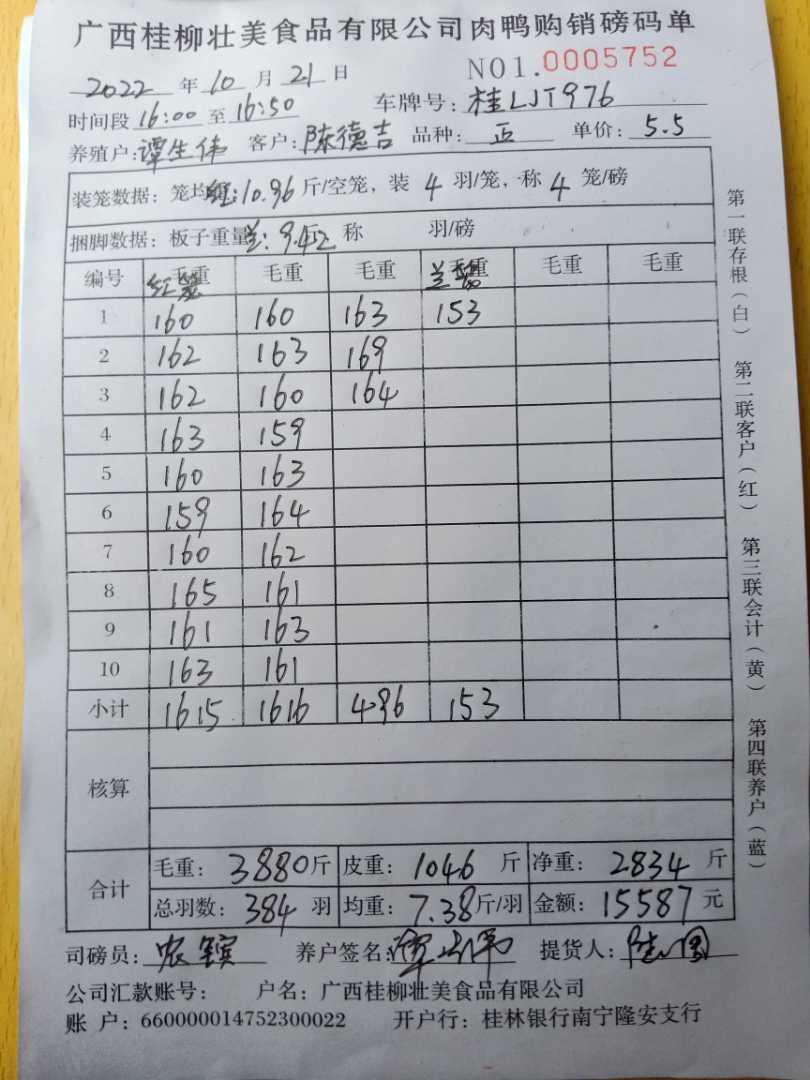 广西桂柳壮美食品有限公司肉鸭购销磅码单
2022 年 10 月 21 日 NO1.0005752
时间段 16:00 至 16:50 车牌号: 桂LJT976
养殖户: 谭生伟 客户: 陈德吉 品种: 正 单价: 5.5
装笼数据: 笼均 红:10.96 斤/空笼, 装 4 羽/笼, 称 4 笼/磅
捆脚数据: 板子重量 兰:9.42 称 羽/磅
编号 毛重 红笼 毛重 毛重 毛重 兰笼 毛重 毛重
1 160 160 163 153
2 162 163 169
3 162 160 164
4 163 159
5 160 163
6 159 164
7 160 162
8 165 161
9 161 163
10 163 161
小计 1615 1616 496 153
核算
合计 毛重: 3880 斤 皮重: 1046 斤 净重: 2834 斤
总羽数: 384 羽 均重: 7.38 斤/羽 金额: 15587 元
司磅员: 农 养户签名: 谭生伟 提货人:
公司汇款账号: 户名: 广西桂柳壮美食品有限公司
账 户: 660000014752300022 开户行: 桂林银行南宁隆安支行
第一联存根(白) 第二联客户(红) 第三联会计(黄) 第四联养户(蓝)